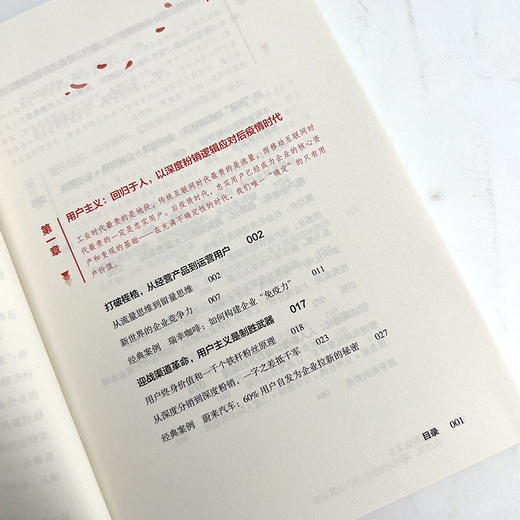 第一章
用户主义：回归于人，以深度粉销逻辑应对后疫情时代
工业时代最贵的是地段，传统互联网时代最贵的是流量，而移动互联网时
代最贵的一定是忠实用户。后疫情时代，忠实用户已经成为企业的核心资
产和变现的基础——在充满不确定性的时代，我们唯一“确定”的只有用
户价值。
打破桎梏，从经营产品到运营用户 002
从流量思维到留量思维 002
新世界的企业竞争力 007
经典案例 瑞幸咖啡：如何构建企业“免疫力” 011
迎战渠道革命，用户主义是制胜武器 017
用户终身价值和一千个铁杆粉丝原理 018
从深度分销到深度粉销，一字之差抵千军
经典案例 蔚来汽车：60%用户自发为企业拉新的秘密 027
目录 001